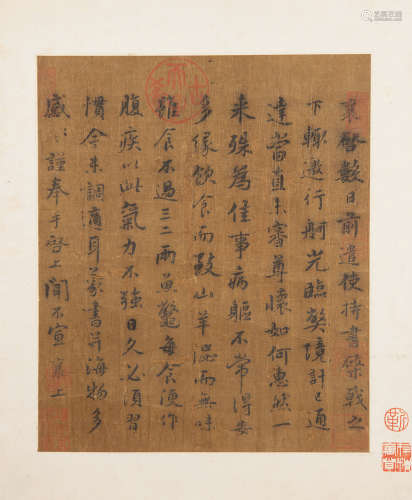 襄啓數日前遣使持書棨戟之
下輙邀行舸光臨獘境計已通
達當直未審尊懷如何惠然一
来殊為佳事病軀不常得安
多緣飲食而致山羊澁而無味
雖食不過三二兩魚鼈每食便作
腹疾以此氣力不强日久必須習
慣今未調適耳蒙書并海物多
感〻謹奉手啓上聞不宣襄上